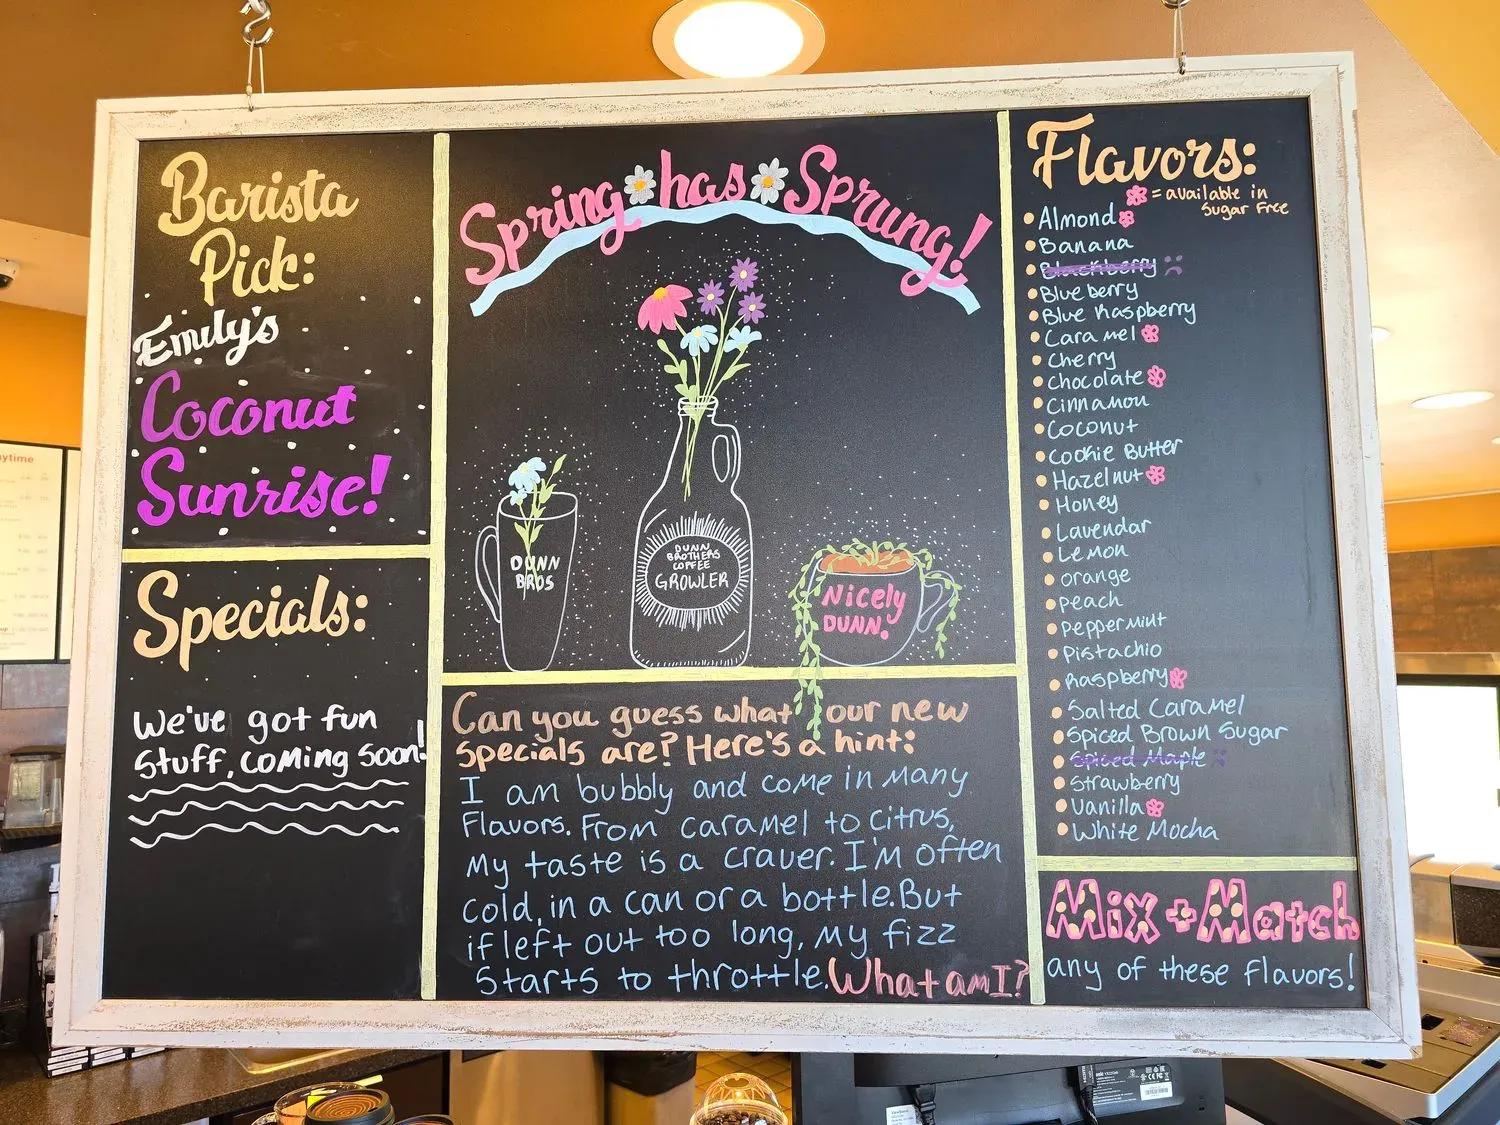 Barista
Pick:
Emily's
Coconut
Sunrise!
Specials:
We've got fun
Stuff, coming soon!
Spring has Sprung!
DUNN
BROS
DUNN
BROTHERS
COFFEE
GROWLER
Nicely
DUNN.
Can you guess what our new
specials are? Here's a hint:
I am bubbly and come in many
Flavors. From caramel to citrus,
My taste is a craver. I'm often
cold, in a can or a bottle. But
if left out too long, my fizz
Starts to throttle. What am I?
Flavors:
= available in
Sugar Free
Almond
Banana
Blackberry
Blueberry
Blue Raspberry
Caramel
Cherry
Chocolate
Cinnamon
Coconut
Cookie Butter
Hazelnut
Honey
Lavendar
Lemon
orange
peach
peppermint
Pistachio
Raspberry
Salted Caramel
Spiced Brown Sugar
Spiced Maple
Strawberry
Vanilla
White Mocha
Mix + Match
any of these flavors!
ytime